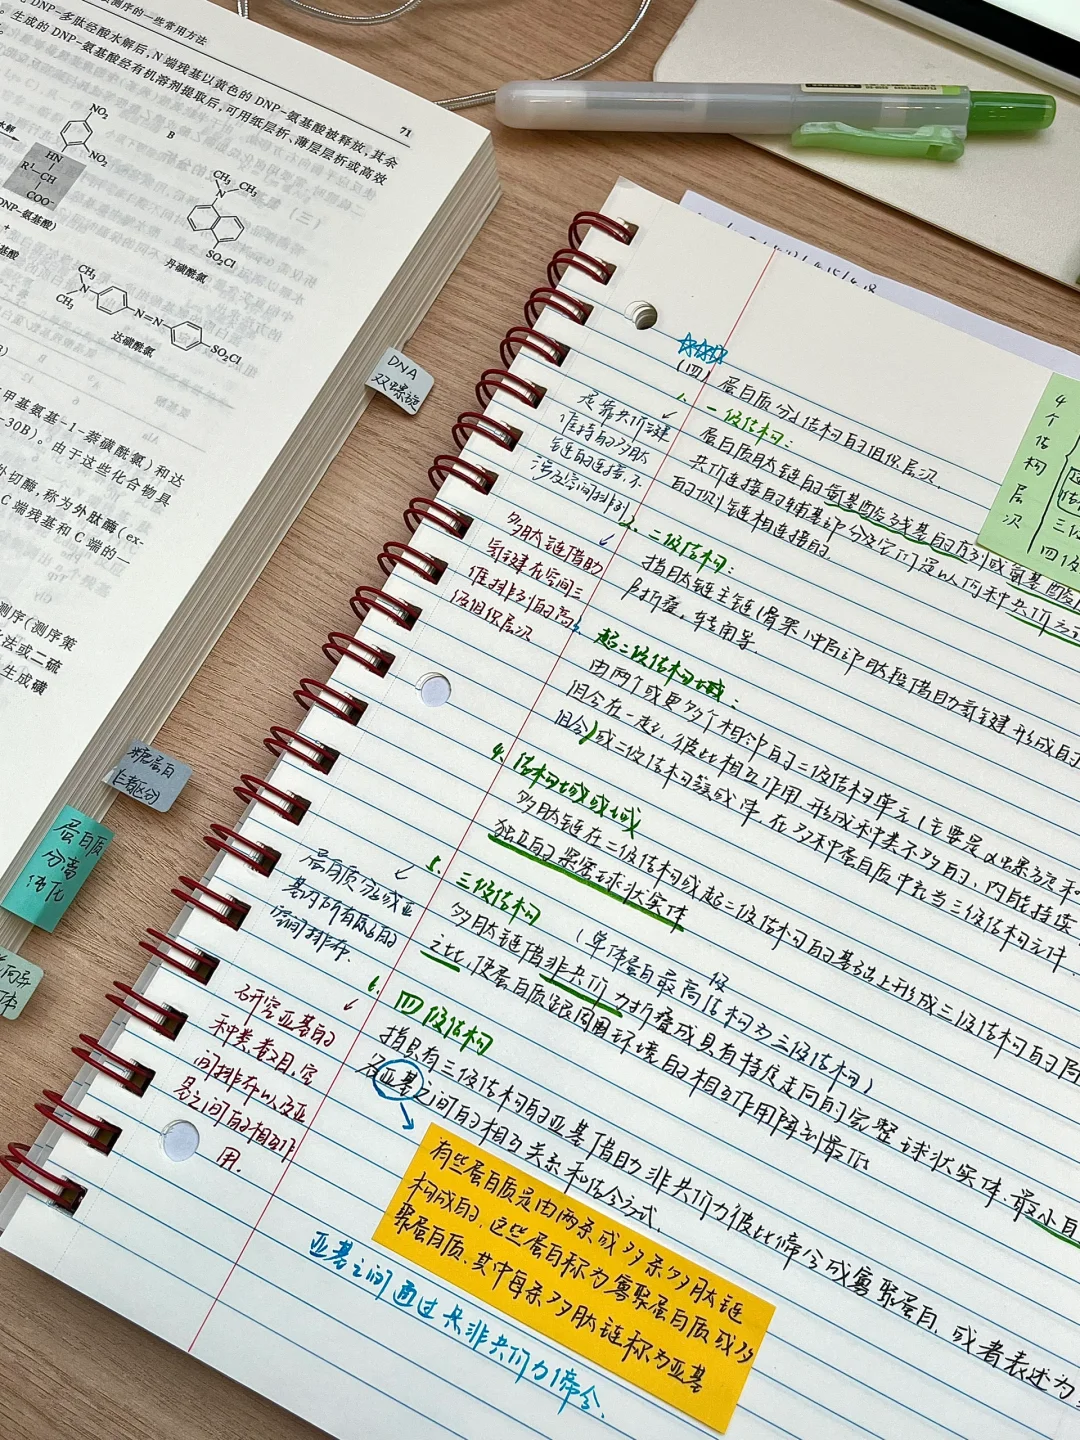 测序的一些常用方法
71
DNP-多肽经酸水解后,N 端残基以黄色的 DNP-氨基酸被释放,其余
。生成的 DNP-氨基酸经有机溶剂提取后,可用纸层析、薄层层析或高效
水解
NO₂
NO₂
HN
R¹—CH
COO⁻
DNP-氨基酸)
+
基酸
B
CH₃
CH₃
N
SO₂Cl
丹磺酰氯
CH₃
N
CH₃
N=N
SO₂Cl
达磺酰氯
甲基氨基-1-萘磺酰氯)和达
-30B)。由于这些化合物具
外切酶,称为外肽酶(ex-
C 端残基和 C 端的一
测序(测序策
法或二硫
生成磺
DNA
双螺旋
糖蛋白
蛋白质
分离
纯化
(四) 蛋白质分子结构的组织层次.
1. 一级结构:
蛋白质肽链的氨基酸残基的序列或氨基酸
共价连接的辅基部分及它们是以何种共价方式
的顺序链相连接的.
是靠共价键
维持的多肽
链的连接,不
涉及空间排列
2. 二级结构:
指肽链主链(骨架)中局部肽段借助氢键形成的
β折叠,转角等.
多肽链借助
氢键在空间三
维排列的高
级组织层次
超二级结构域:
由两个或更多个相邻的二级结构单元(主要是α螺旋和
组合在一起,彼此相互作用,形成种类不多的、
组合)或二级结构簇或串,在多种蛋白质中充当三级结构元件.
4. 结构域或域
多肽链在二级结构或超二级结构的基础上形成三级结构的局
独立的紧密球状实体
5. 三级结构
(单体蛋白最高级结构为三级结构)
多肽链借非共价力折叠成具有特定走向的完整球状实体.最小的
之比,使蛋白质跟周围环境的相互作用降到最低
蛋白质分子或亚
基内所有原子的
空间排布.
6. 四级结构
指具有三级结构的亚基借助非共价力彼此缔合成寡聚蛋白,或者表述为
亚基之间的相互关系和结合方式.
研究亚基的
种类,数目,空
间排布以及亚
基之间的相互作
用.
有些蛋白质是由两条或多条多肽链
构成的,这些蛋白称为寡聚蛋白质或多
聚蛋白质.其中每条多肽链称为亚基
亚基之间通过是非共价力缔合.
4
个
结
构
层
次
三级
四级